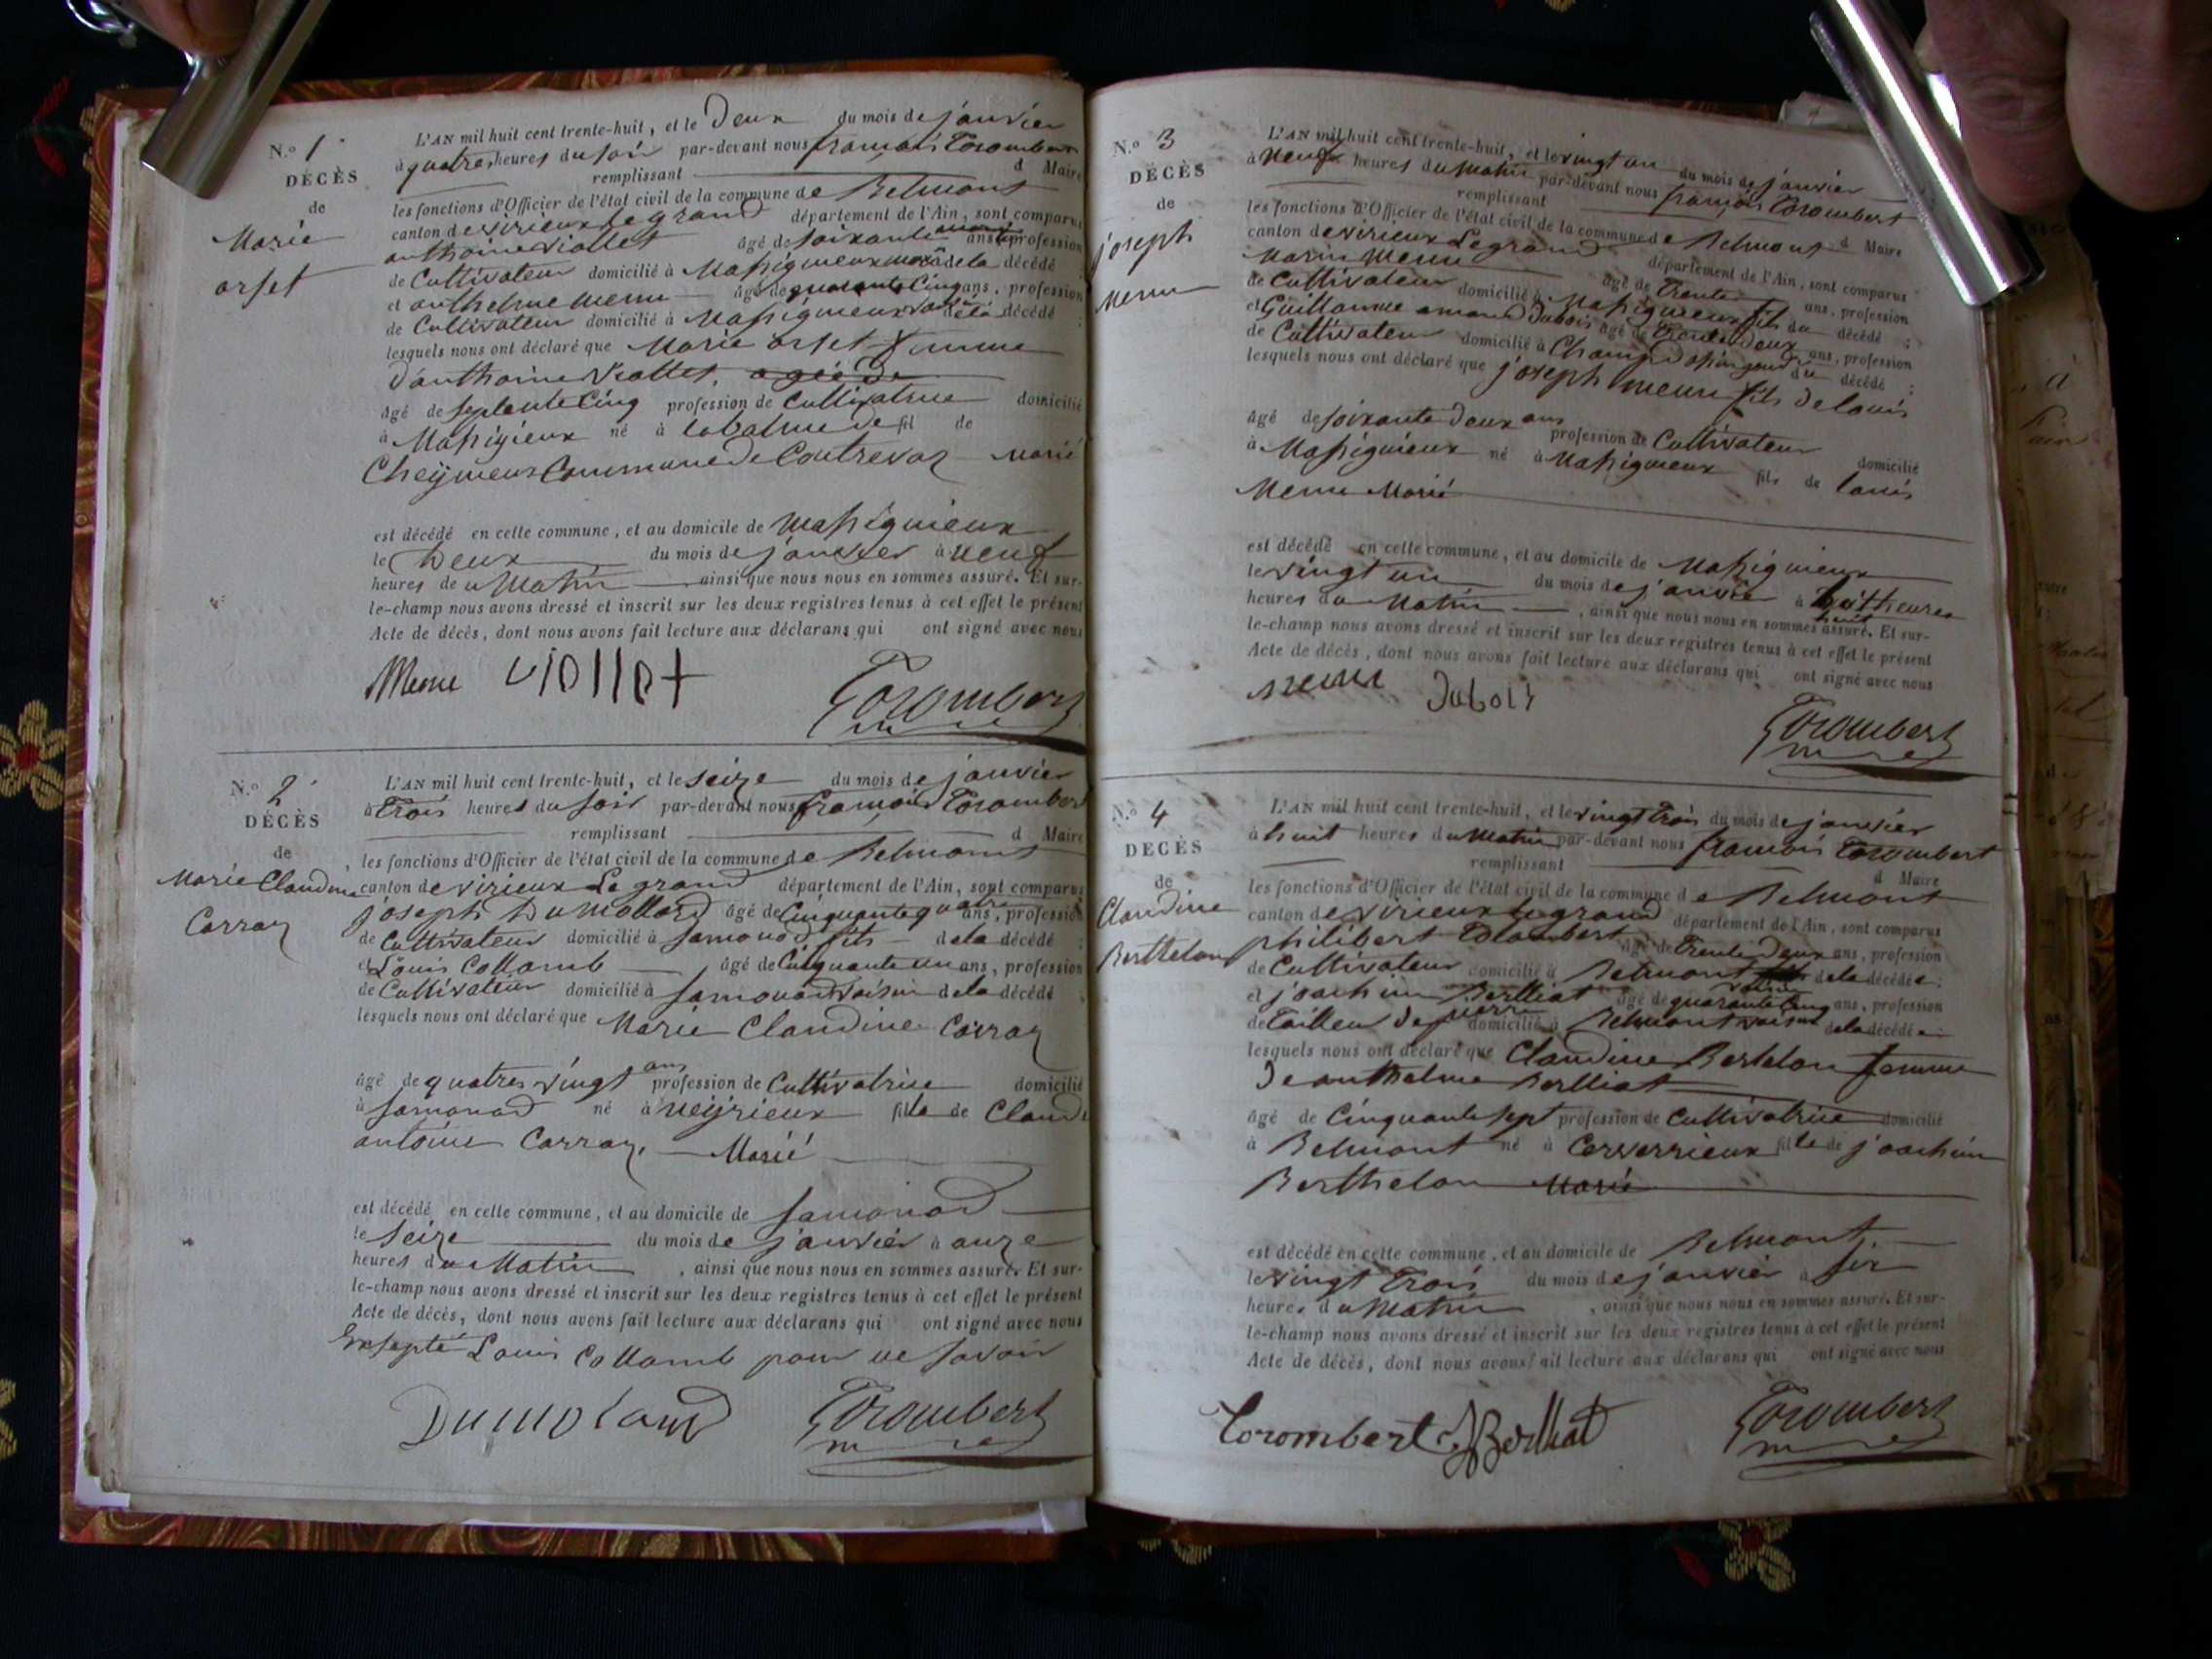 N.o 1
DÉCÈS
de
Marie
orset
L'AN mil huit cent trente-huit, et le Deux du mois de janvier
à quatre heures du soir par-devant nous françois Corombert
remplissant d Maire
les fonctions d'Officier de l'état civil de la commune de Belmont
canton de virieux le grand département de l'Ain, sont comparus
anthoine viollet âgé de soixante ans, profession
de Cultivateur domicilié à Massigneux dela décédé ;
et anthelme Meme âgé de quarante Cinq ans, profession
de Cultivateur domicilié à Massigneux dela décédé ;
lesquels nous ont déclaré que Marie orset femme
d'anthoine Viollet, agée de
âgé de septente Cinq profession de Cultivatrice domicilié
à Massigieux né à labalme de fil de
Cheÿmeux Commune de Contrevoz Marié
est décédé en cette commune, et au domicile de Massignieux
le Deux du mois de janvier à neuf
heures du Matin ainsi que nous nous en sommes assuré. Et sur-
le-champ nous avons dressé et inscrit sur les deux registres tenus à cet effet le présent
Acte de décès, dont nous avons fait lecture aux déclarans qui ont signé avec nous
Meme viollet Corombert
N.o 2
DÉCÈS
de
Marie Claudine
Carraz
L'AN mil huit cent trente-huit, et le seize du mois de janvier
à trois heures du soir par-devant nous françois Corombert
remplissant d Maire
les fonctions d'Officier de l'état civil de la commune de Belmont
canton de virieux Le grand département de l'Ain, sont comparus
joseph Dumollard âgé de Cinquante quatre ans, profession
de Cultivateur domicilié à samonod fils dela décédé ;
et Louis Collomb âgé de Cinquante un ans, profession
de Cultivateur domicilié à samonod voisin dela décédé
lesquels nous ont déclaré que Marie Claudine Carraz
âgé de quatres vingt ans profession de Cultivatrice domicilié
à samonod né à veÿrieux fille de Claude
antoine Carraz, Marié
est décédé en cette commune, et au domicile de samonod
le seize du mois de janvier à onze
heures du Matin, ainsi que nous nous en sommes assuré. Et sur-
le-champ nous avons dressé et inscrit sur les deux registres tenus à cet effet le présent
Acte de décès, dont nous avons fait lecture aux déclarans qui ont signé avec nous
Exsepté Louis Collomb pour ne savoir
Dumolard Corombert
N.o 3
DÉCÈS
de
joseph
Meme
L'AN mil huit cent trente-huit, et le vingt un du mois de janvier
à neuf heures du Matin par-devant nous françois Corombert
remplissant d Maire
les fonctions d'Officier de l'état civil de la commune de Belmont
canton de virieux Legrand département de l'Ain, sont comparus
Marin Meme âgé de Trente ans, profession
de Cultivateur domicilié à Massigneux fils du décédé ;
et Guillaume amand Dubois âgé de Trente Deux ans, profession
de Cultivateur domicilié à Champ du décédé ;
lesquels nous ont déclaré que joseph meme fils de louis
âgé de soixante deux ans profession de Cultivateur domicilié
à Massignieux né à Massigneux fils de louis
Meme Marié
est décédé en cette commune, et au domicile de Massignieux
le vingt un du mois de janvier à huit heures
huit
heures du Matin, ainsi que nous nous en sommes assuré. Et sur-
le-champ nous avons dressé et inscrit sur les deux registres tenus à cet effet le présent
Acte de décès, dont nous avons fait lecture aux déclarans qui ont signé avec nous
Meme Dubois Corombert
N.o 4
DÉCÈS
de
Claudine
Berthelon
L'AN mil huit cent trente-huit, et le vingt trois du mois de janvier
à huit heures du Matin par-devant nous françois Corombert
remplissant d Maire
les fonctions d'Officier de l'état civil de la commune de Belmont
canton de virieux legrand département de l'Ain, sont comparus
philibert Colombert âgé de Trente Deux ans, profession
de Cultivateur domicilié à Belmont voisin dela décédée ;
et joachim Berlliat âgé de quarante Cinq ans, profession
de Tailleur de pierre domicilié à Belmont voisin dela décédée
lesquels nous ont déclaré que Claudine Bertelon femme
De anthelme Berlliat
âgé de Cinquante sept profession de Cultivatrice domicilié
à Belmont né à Cerverrieux fille de joachim
Berthelon Marié
est décédé en cette commune, et au domicile de Belmont.
le vingt Trois du mois de janvier à six
heures du Matin, ainsi que nous nous en sommes assuré. Et sur-
le-champ nous avons dressé et inscrit sur les deux registres tenus à cet effet le présent
Acte de décès, dont nous avons fait lecture aux déclarans qui ont signé avec nous
Corombert J Berlliat Corombert